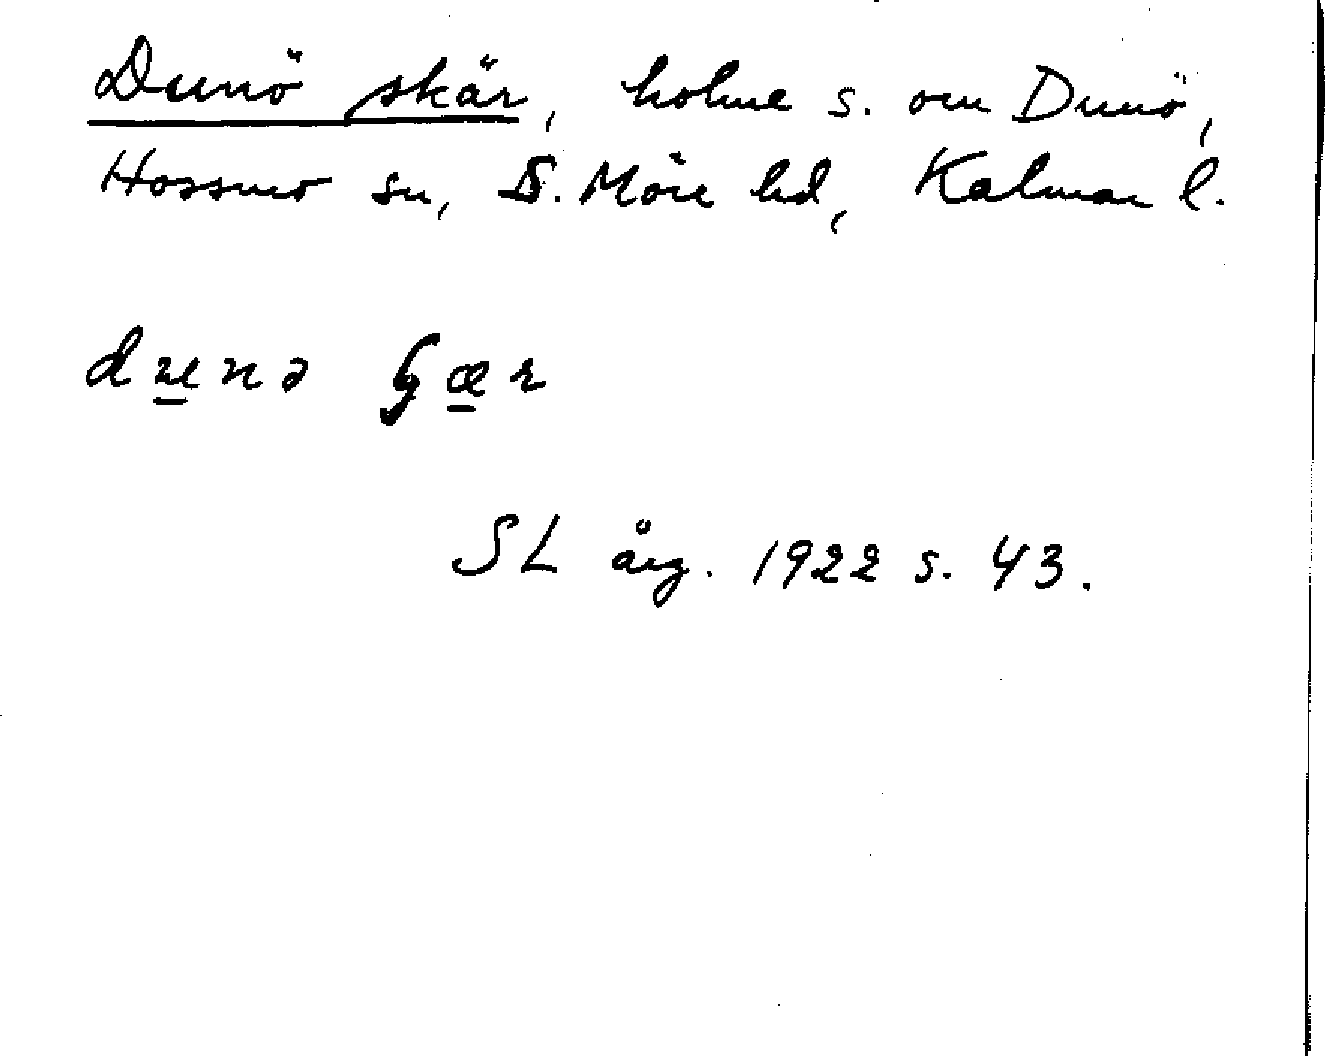 Dunö skär, holme s. om Dunö,
Hossmo sn, S. Möre hd, Kalmar l.
dunə ɧær
SL årg. 1922 s. 43.